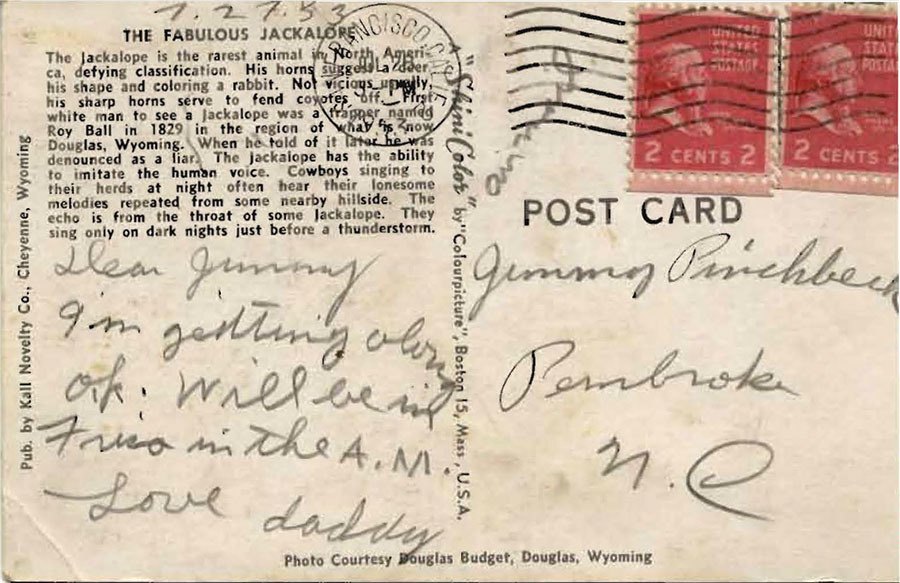 7.27.53
THE FABULOUS JACKALOPE
The Jackalope is the rarest animal in North Ameri-
ca, defying classification. His horns suggest a deer,
his shape and coloring a rabbit. Not vicious usually,
his sharp horns serve to fend coyotes off. First
white man to see a Jackalope was a trapper named
Roy Ball in 1829 in the region of what is now
Douglas, Wyoming. When he told of it later he was
denounced as a liar. The Jackalope has the ability
to imitate the human voice. Cowboys singing to
their herds at night often hear their lonesome
melodies repeated from some nearby hillside. The
echo is from the throat of some Jackalope. They
sing only on dark nights just before a thunderstorm.
Dear Jimmy
I'm getting along
ok. Will be in
Frisco in the A.M.
Love daddy
Pub. by Kall Novelty Co., Cheyenne, Wyoming
"Shini-Color" by "Colourpicture", Boston 15, Mass., U.S.A.
UNITED
STATES
POSTAGE
2 CENTS 2
UNIT
STAT
POSTA
2 CENTS 2
POST CARD
Jimmy Pinchbeck
Pembroke
N. C
Photo Courtesy Douglas Budget, Douglas, Wyoming